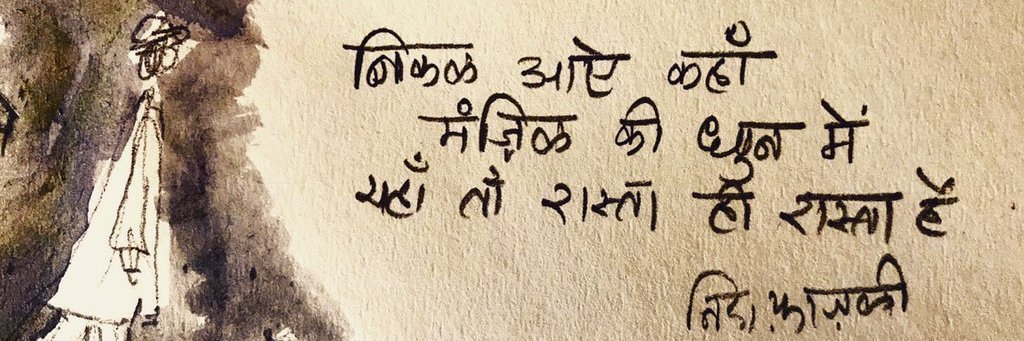 निकल आऐ कहाँ
मंज़िल की धुन में
यहाँ तो रास्ता ही रास्ता है
निदा फ़ाज़ली